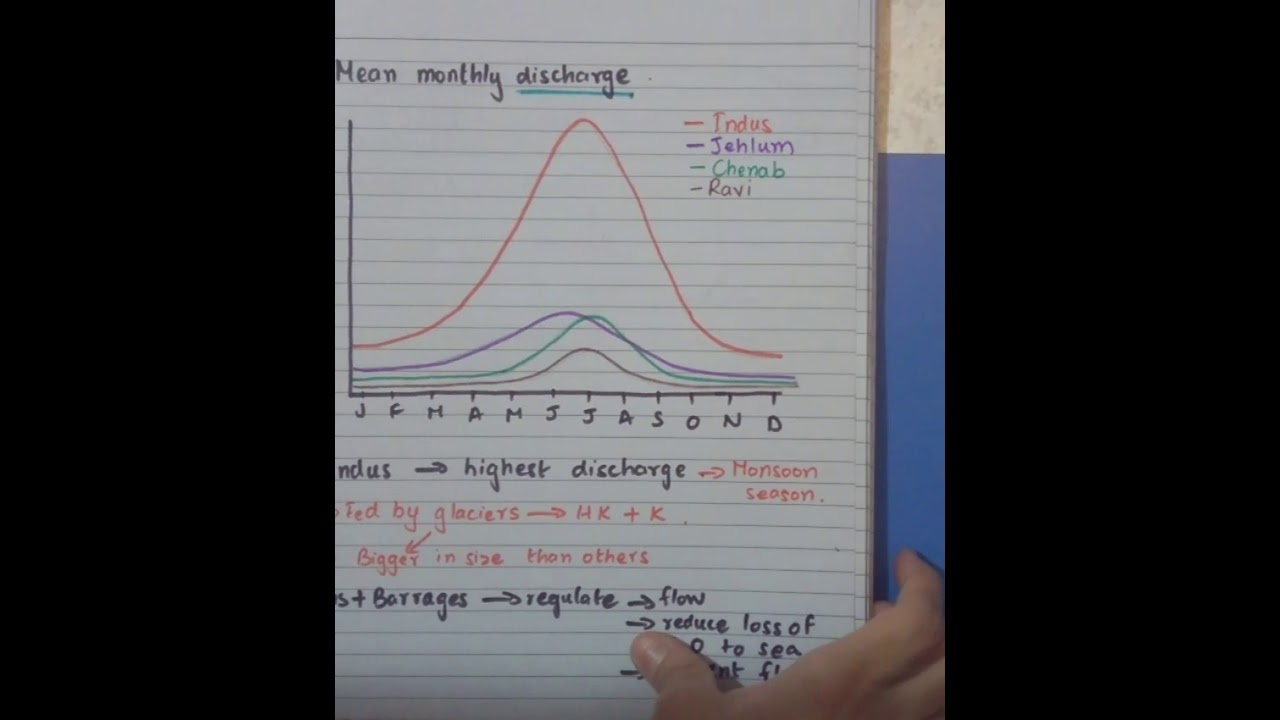 Mean monthly discharge.
— Indus
— Jehlum
— Chenab
— Ravi
J F M A M J J A S O N D
ndus → highest discharge → Monsoon
season.
Fed by glaciers → HK + K.
Bigger in size than others
s + Barrages → regulate → flow
→ reduce loss of
O to sea